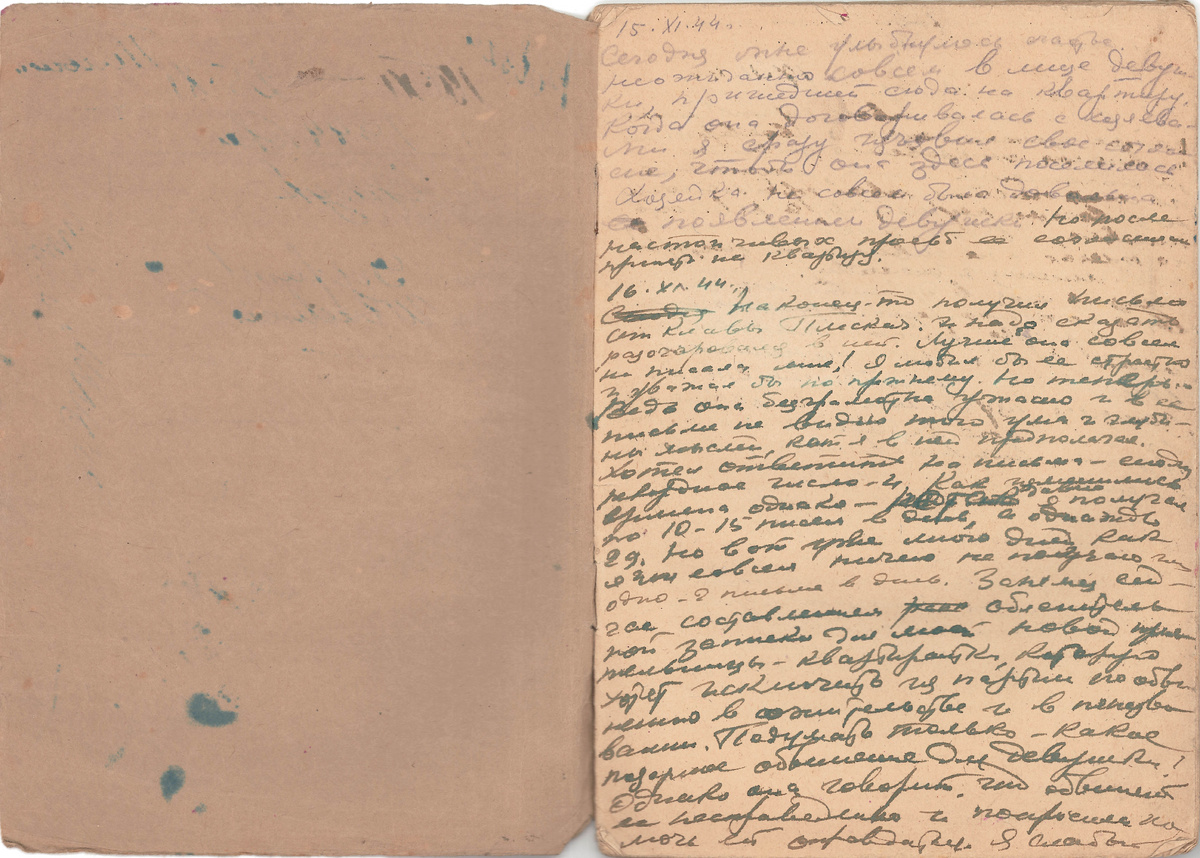 15.XI.44.
Сегодня мне улыбнулось счастье
неожиданно совсем в лице девуш-
ки, пришедшей сюда на квартиру.
Когда она договаривалась с хозяева-
ми я сразу изъявил свое согла-
сие, чтобы она здесь поселилась
Хозяйка не совсем была довольна
появлением девушки. Но после
настойчивых просьб ее согласились
принять на квартиру.
16.XI.44.
Наконец-то получил письмо
от Клавы Плискач. и надо сказать
разочаровался в ней. Лучше она совсем
не писала мне! Я любил бы ее страстно
и уважал бы по прежнему. Но теперь..
Ведь она безграмотна ужасно и в ее
письме не видно того ума и глуби-
ны мыслей, кот. я в ней предполагал.
Хотел ответить на письма-
их. Как изменились
времена однако - давно я получал
по 10-15 писем в день, а однажды
29. Но вот уже много дней как
я совсем ничего не получаю или
одно-2 письма в день. Займусь сей-
час составлением объяснитель-
ной записки для моей новой прия-
тельницы - квартирантки, которую
хотят исключить из партии по обви-
нению в сожительстве и в
Подумать только - какое
позорное обвинение для девушки!
Однако она говорит, что обвиняют
ее несправедливо и попросила по-
мочь ей оправдаться. Я